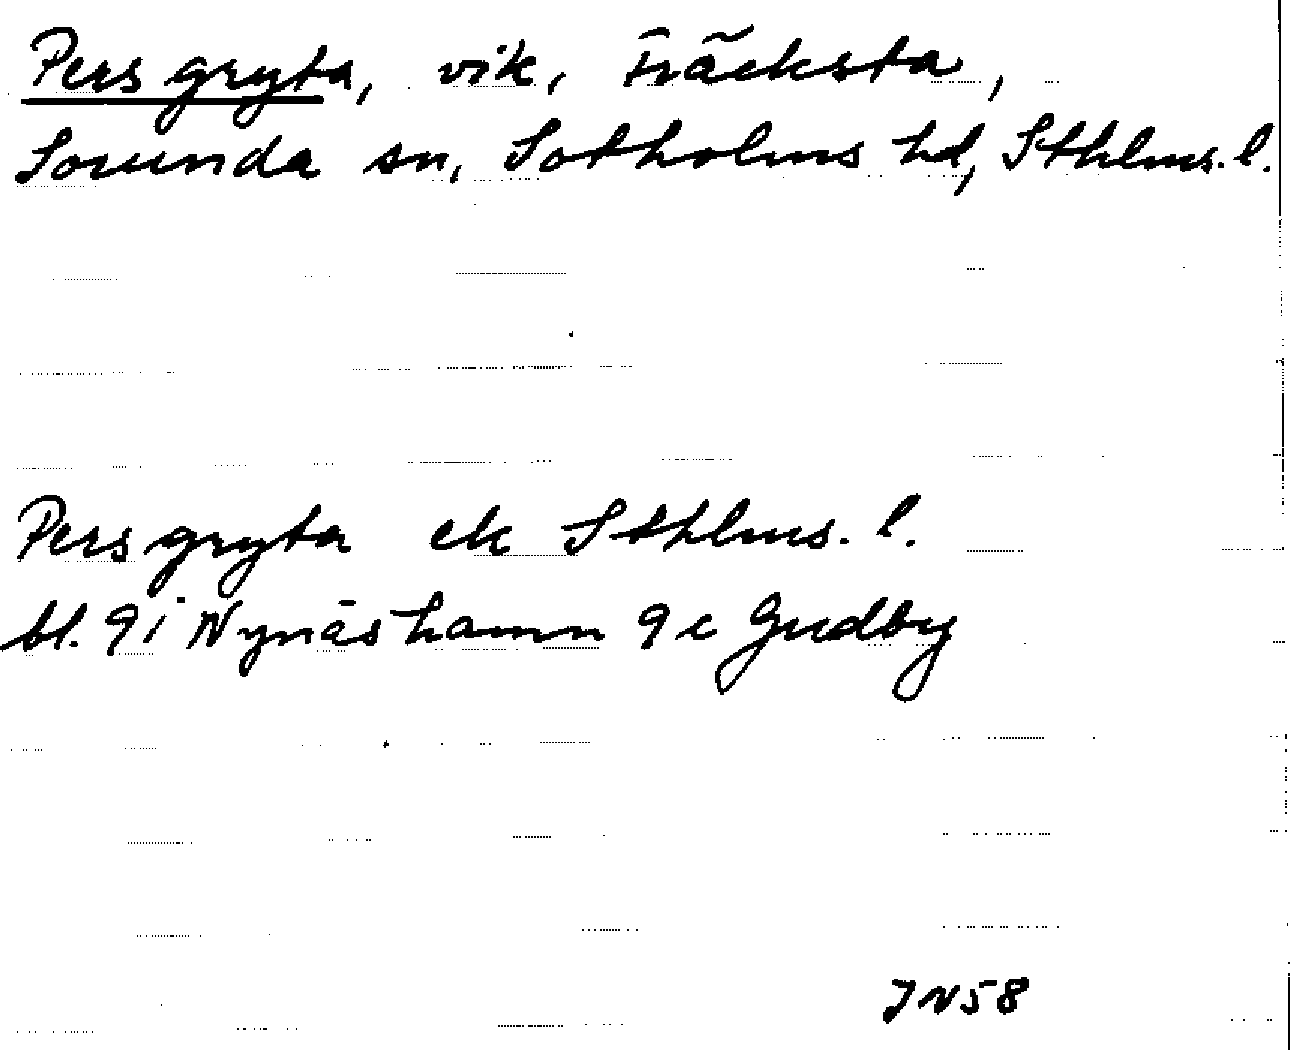 Pers gryta, vik, Fräcksta,
Sorunda sn, Sotholms hd, Sthlms. l.
Pers gryta ek Sthlms. l.
bl. 9i Nynäshamn 9c Gudby
JN58